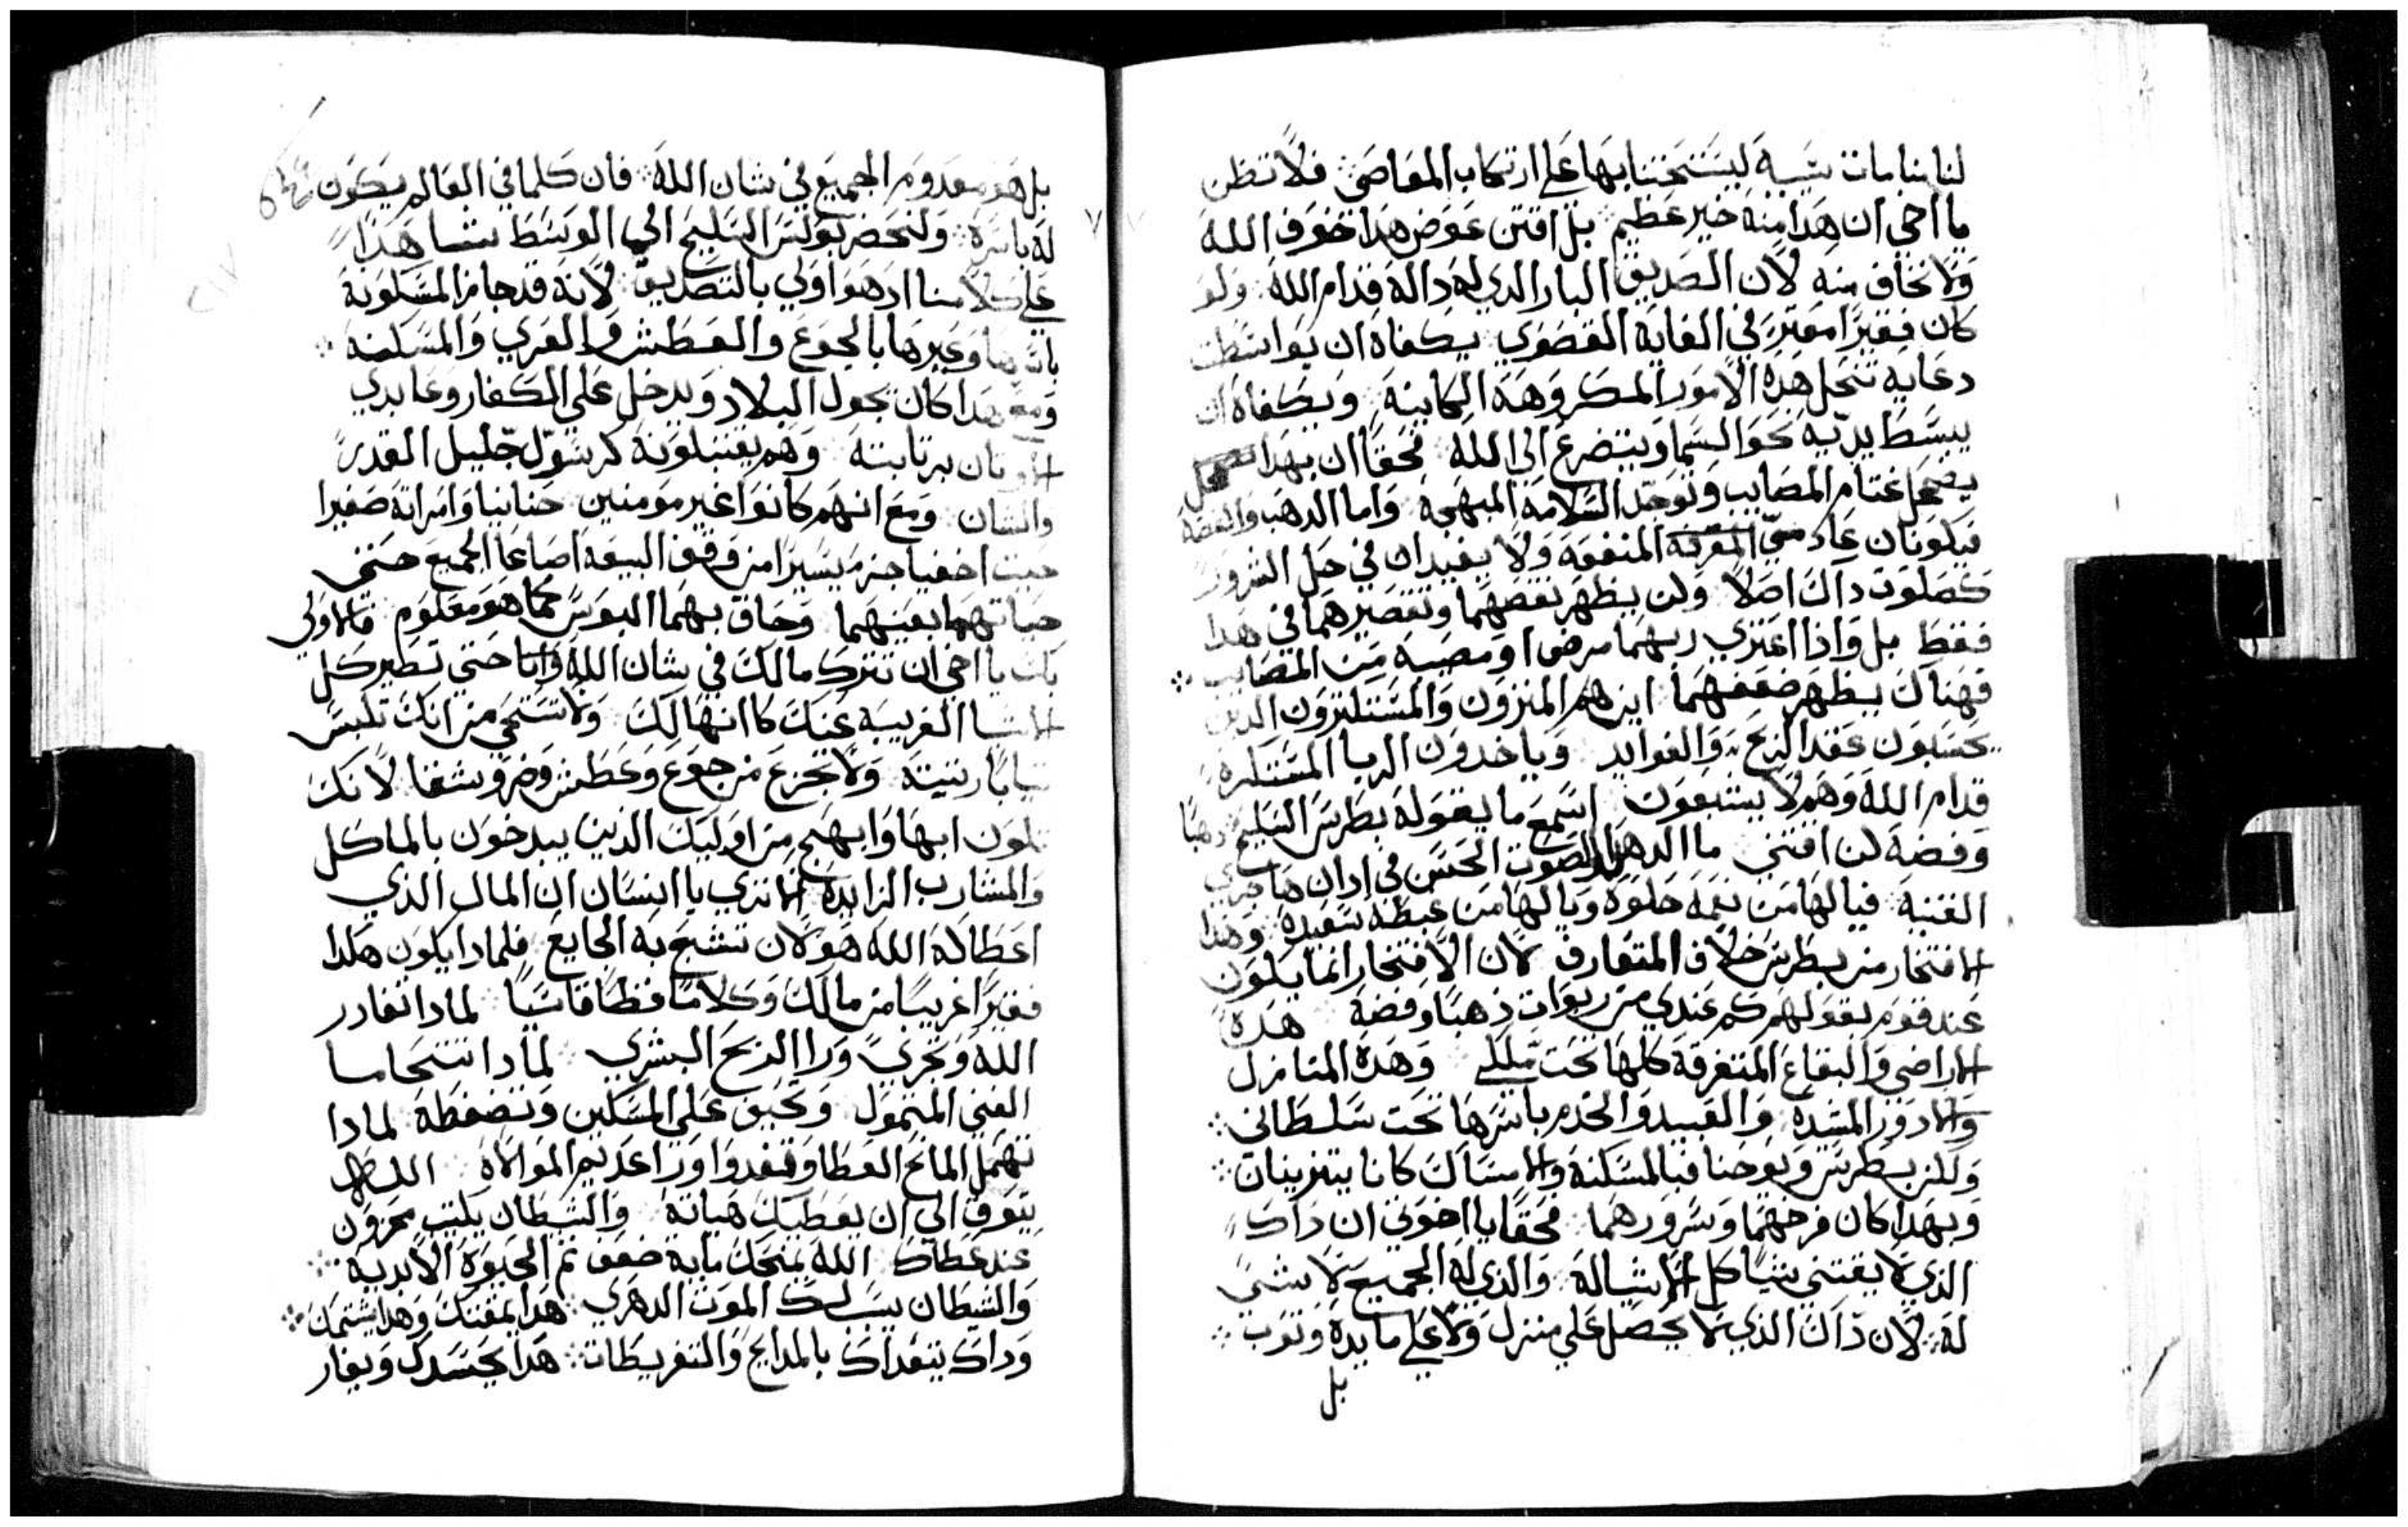 لنا منامات يسيه ليستحتنا بها علي ارتكاب المعاصي فلا تظن
يا اخي ان هدا منه خير عظيم بل اقتن عوض هدا خوف الله
ولا تخاف منه لان الصديق البار الدي له دالة قدام الله ولو
كان فقيرًا مقترًا في الغاية القصوي يكفاه ان بواسطت
دعايه تنحل هده الامور المكروهة الكاينة ويكفاه ان
يبسط يديه نحو السما ويتضرع الي الله فحقًا ان بهدا
يضمحل اغتمام المصايب وتوجد السلامة المبهجة واما الدهب والفضة
فيكونان عادمي المنفعة ولا يفيدان في حل الشرور
كصلوت داك اصلا ولن يظهر نقصهما وتقصيرهما في هدا
فقط بل واذا اعتري ربهما مرض او مصيبة من المصايب
فهناك يظهر ضعفهما اين هم المنزون والمستكثرون الدين
يحسبون عقد الربح والفوايد وياخدون الربا المستكره
قدام الله وهم لا يشبعون اسمع ما يقوله بطرس السليح دهبًا
وفضة لن اقتني ما الد هدا الصوت الحسن في ادان
الغنية فيا لها من نغمة حلوة ويا لها من غبطة سعيدة وهدا
الافتخار من بطرس خلاف المتعارف لان الافتخار انما يكون
عند قوم بقولهم كم عندي من ربوات ذهبًا وفضة هده
الاراضي والبقاع المتفرقة كلها تحت ملكي وهده المنازل
والادور المشيده والعبيد والخدم باسرها تحت سلطاني
ولكن بطرس ويوحنا فبالمسكنة والامساك كانا يتزينان
وبهدا كان فرحهما وسرورهما فحقًا يا اخوتي ان داك
الذي لا يقتني شيًا كل الاشيا له والذي له الجميع لا شي
له لان ذاك الذي لا يحصل علي منزل ولا علي مايدة وثوب
بل
بل هو معدوم الجميع في شان الله فان كلما في العالم يكون
له باسره ولنحضر بولس السليح الي الوسط شاهدًا
علي كلامنا اد هو اولي بالتصديق لانه قد جاز المسكونة
باسرها وغيرها بالجوع والعطش والعري والمسكنة
ومع هدا كان يجول البلاد ويدخل علي الكفار وعابدي
الاوتان برتابته وهم يقتبلونه كرسول جليل القدر
والشان ومع انهم كانوا غير مومنين حنانيا وامراته صفيرا
حيت اخفيا جزءً يسيرًا من وقف البيعة اضاعا الجميع حتي
حياتهما بعينهما وحاق بهما البوس كما هو معلوم فالاولي
بك يا اخي ان تترك مالك في شان الله واما حتي تصير كل
الاشيا الغريبة عنك كانها لك ولا تستحي من انك تلبس
تيابًا رتيتة ولا تجزع من جوع وعطش وضر وشقا لانك
تكون ابها وابهج من اوليك الذين يبدخون بالماكل
والمشارب الزايدة اما تري يا انسان ان المال الذي
اعطاكه الله هو لان تشبع به الجايع فلمادا يكون هكدا
فقيرًا غريبًا من مالك وكلامًا فظًا قاسيًا لمادا تغادر
الله وتجري ورا الربح البشري لمادا تتحاما
الغني المتمول وتحيق علي المسكين وتضغطه لمادا
تهمل المانح العطا وتغدوا ورا عديم المولاة الله
يتوق الي ان يعطيك هباته والشيطان يكتب محزون
عند عطاك الله يمنحك ماية ضعف تم الحيوة الابدية
والشيطان يسبب لك الموت الدهري هدا يمقتك وهدا يشتمك
وداك يتغداك بالمدايح والتقريظات هدا يحسدك ويغار